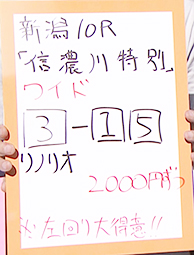 新潟10R
「信濃川特別」
ワイド
3-15
リノリオ
2000円
※左回り大得意!!